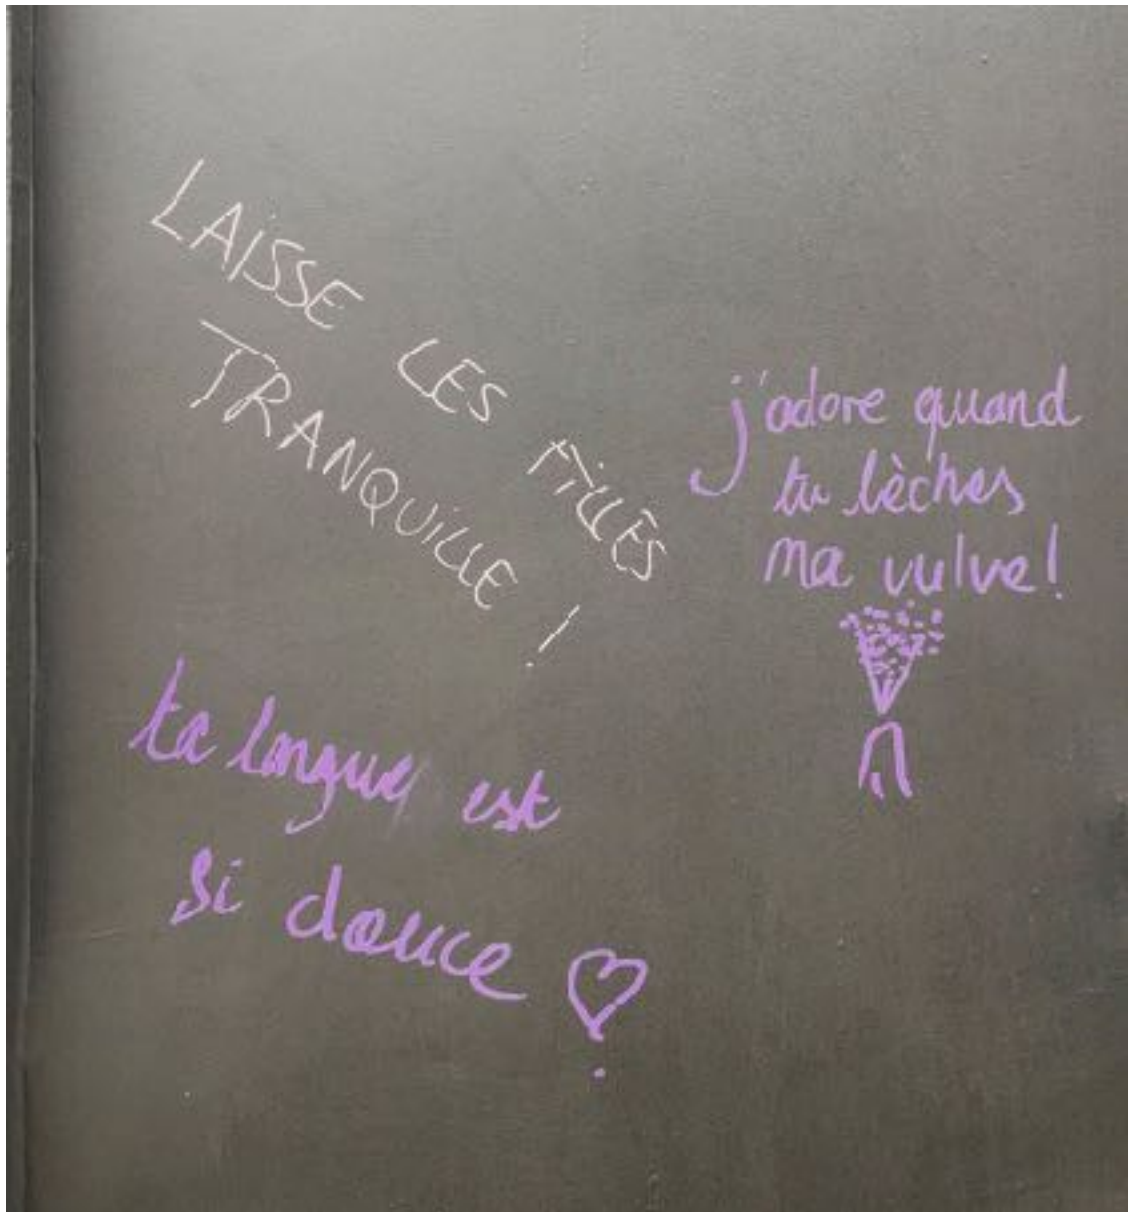 LAISSE LES FILLES
TRANQUILLE !
j'adore quand
tu lèches
ma vulve!
ta langue est
si douce